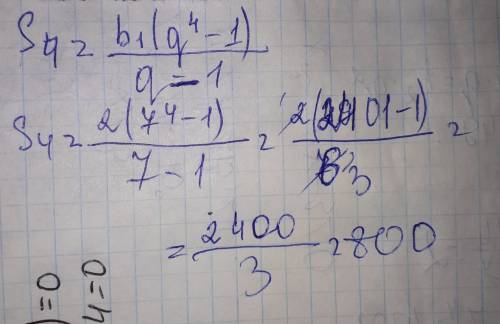 S₄ = b₁(q⁴-1) / q-1
S₄ = 2(7⁴-1) / 7-1 = 2(2401-1) / 6 3 =
= 2400 / 3 = 800
)=0
4=0